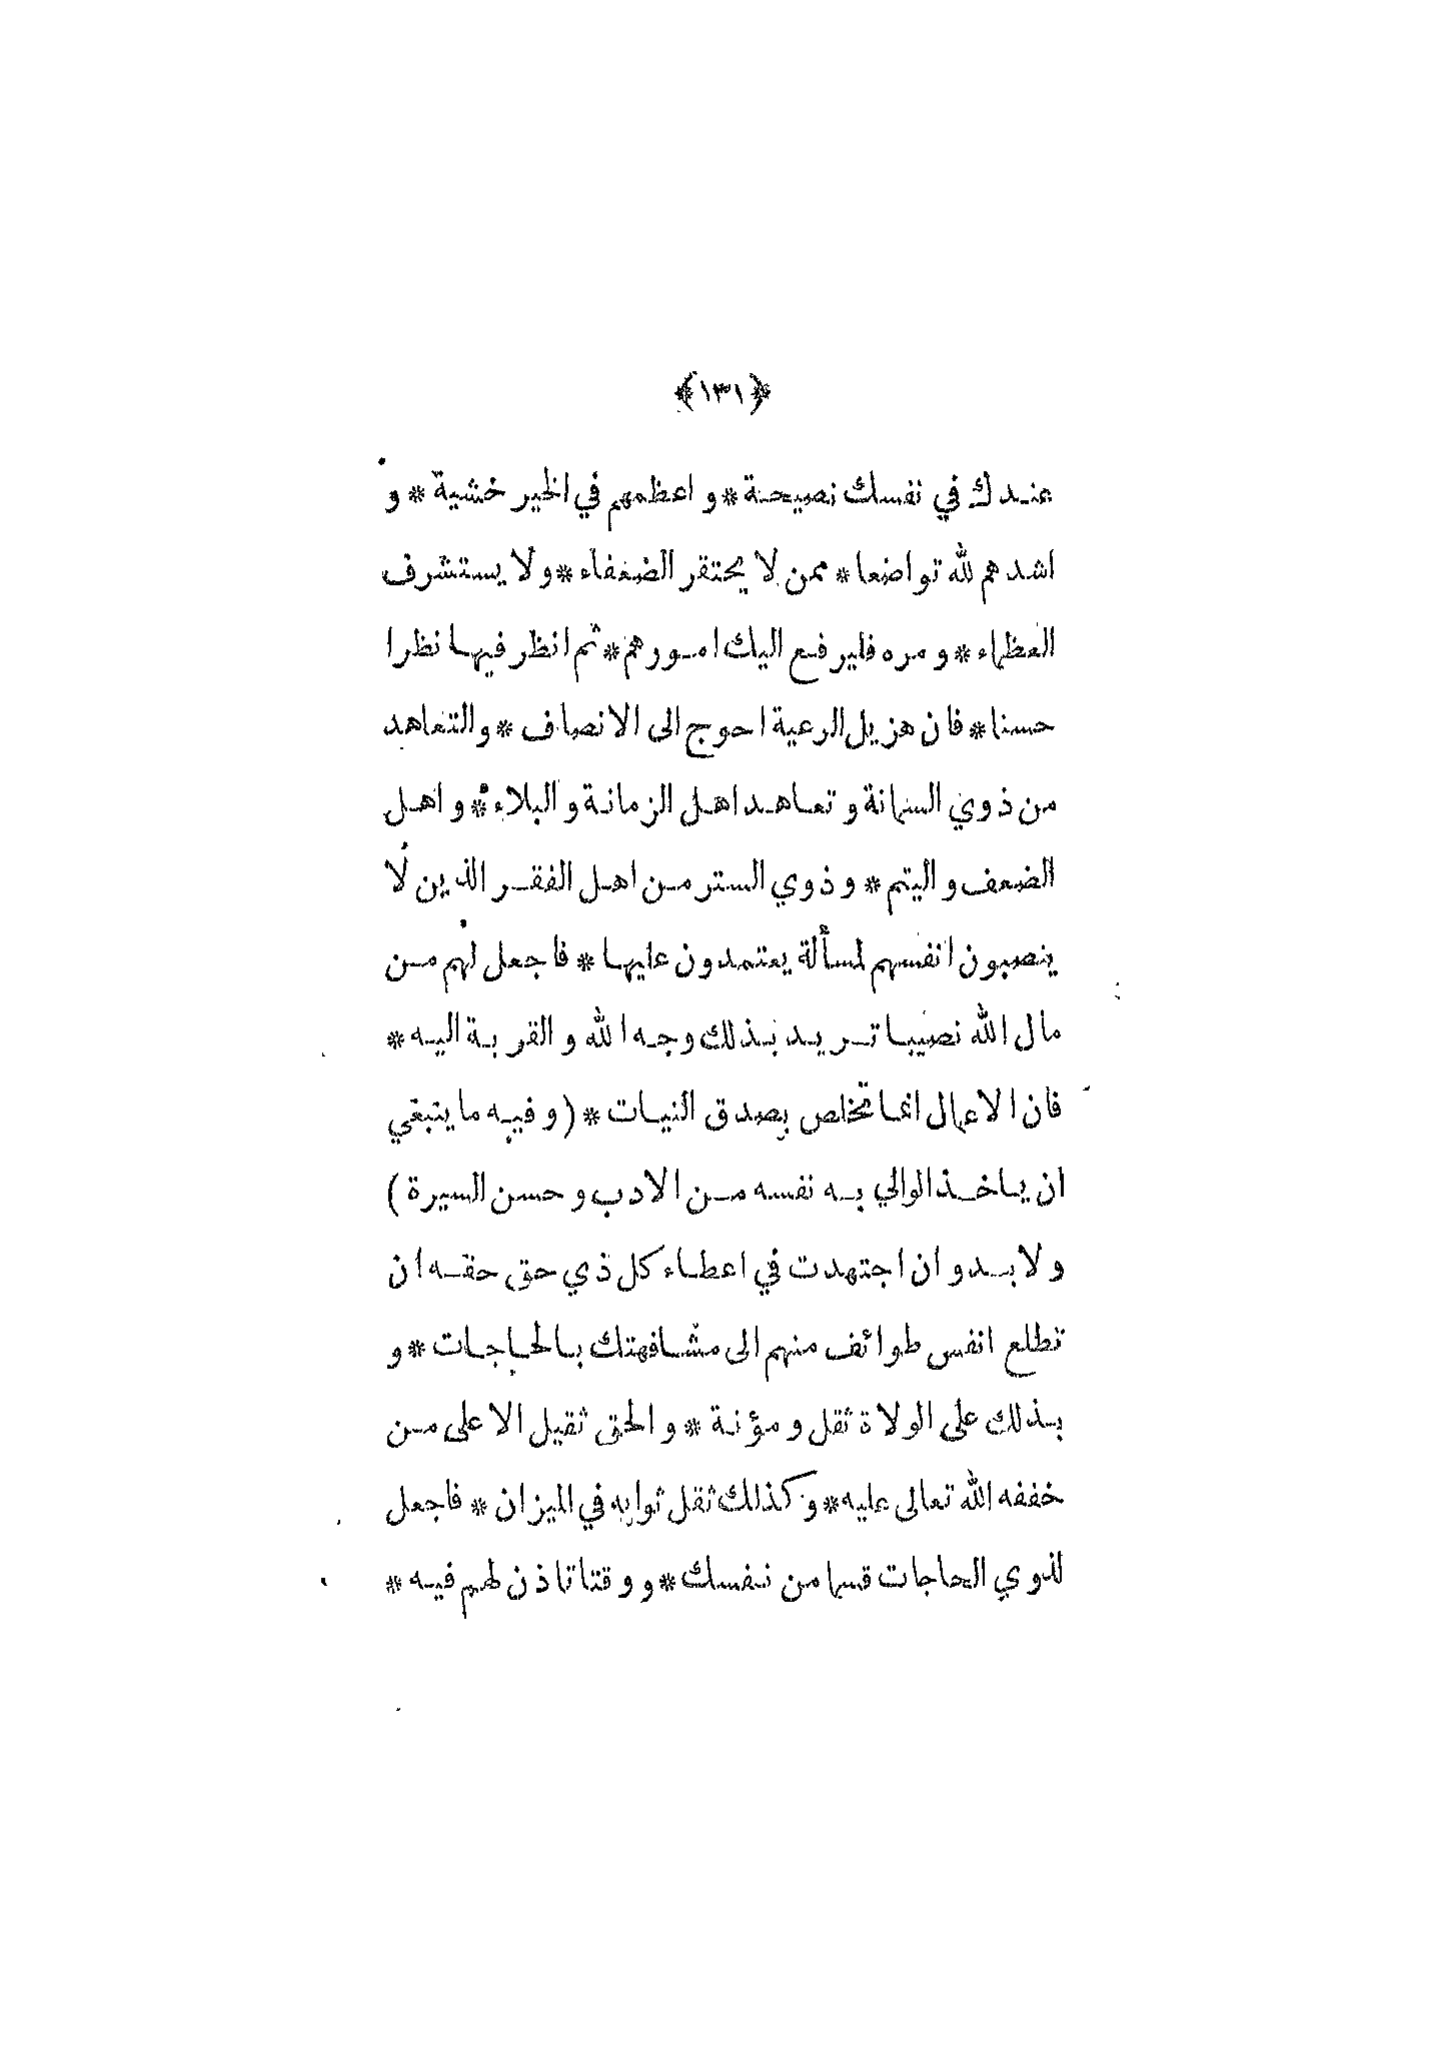 ﴿١٣١﴾
عندك في نفسك نصيحة * و اعظمهم في الخير خشية * و
اشدهم لله تواضعا * ممن لا يحتقر الضعفاء * ولا يستشرف
العظماء * و مره فليرفع اليك امورهم * ثم انظر فيها نظرا
حسنا * فان هزيل الرعية احوج الى الانصاف * والتعاهد
من ذوي السمانة و تعاهد اهل الزمانة و البلاء * و اهل
الضعف و اليتم * و ذوي الستر من اهل الفقر الذين لا
ينصبون انفسهم لمسألة يعتمدون عليها * فاجعل لهم من
مال الله نصيبا تريد بذلك وجه الله و القربة اليه *
فان الاعمال انما تخلص بصدق النيات * (و فيه ما ينبغي
ان ياخذ الوالي به نفسه من الادب و حسن السيرة)
و لا بد و ان اجتهدت في اعطاء كل ذي حق حقه ان
تطلع انفس طوائف منهم الى مشافهتك بالحاجات * و
بذلك على الولاة ثقل و مؤنة * و الحق ثقيل الا على من
خففه الله تعالى عليه * و كذلك ثقل ثوابه في الميزان * فاجعل
لذوي الحاجات قسما من نفسك * و وقتا تاذن لهم فيه *